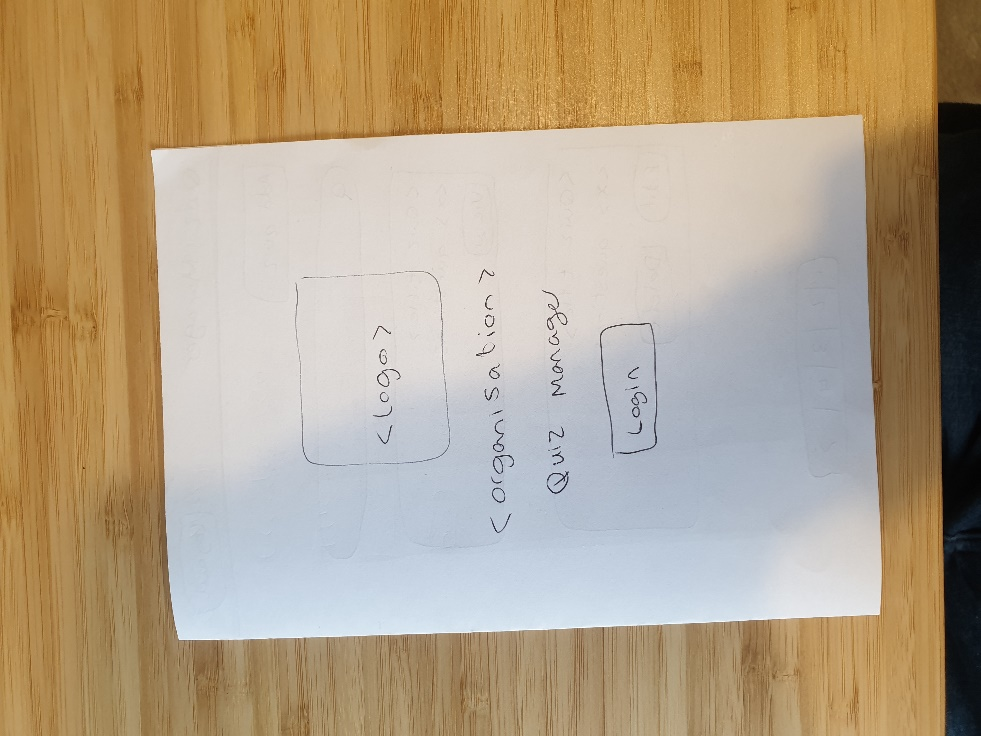 <Logo>
<organisation>
Quiz Manager
Login